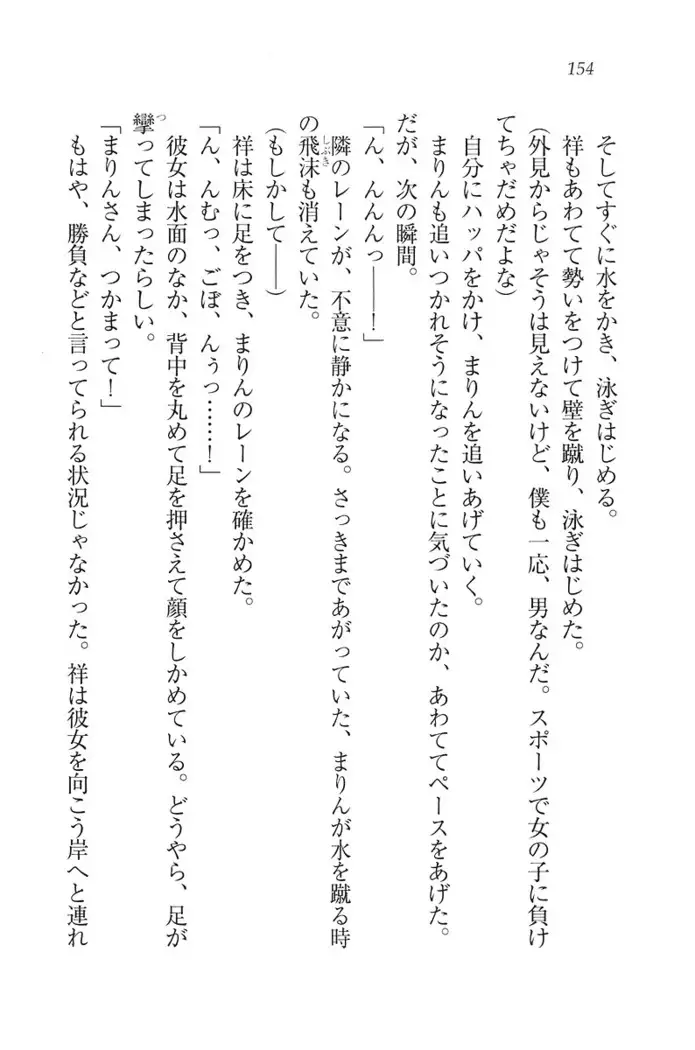 154
そしてすぐに水をかき、泳ぎはじめる。
祥もあわてて勢いをつけて壁を蹴り、泳ぎはじめた。
(外見からじゃそうは見えないけど、僕も一応、男なんだ。スポーツで女の子に負け
てちゃだめだよな)
自分にハッパをかけ、まりんを追いあげていく。
まりんも追いつかれそうになったことに気づいたのか、あわててペースをあげた。
だが、次の瞬間。
「ん、んんんっ——！」
隣のレーンが、不意に静かになる。さっきまであがっていた、まりんが水を蹴る時
の飛沫も消えていた。
(もしかして——)
祥は床に足をつき、まりんのレーンを確かめた。
「ん、んむっ、ごぼ、んぅっ……！」
彼女は水面のなか、背中を丸めて足を押さえて顔をしかめている。どうやら、足が
攣ってしまったらしい。
「まりんさん、つかまって！」
もはや、勝負などと言ってられる状況じゃなかった。祥は彼女を向こう岸へと連れ